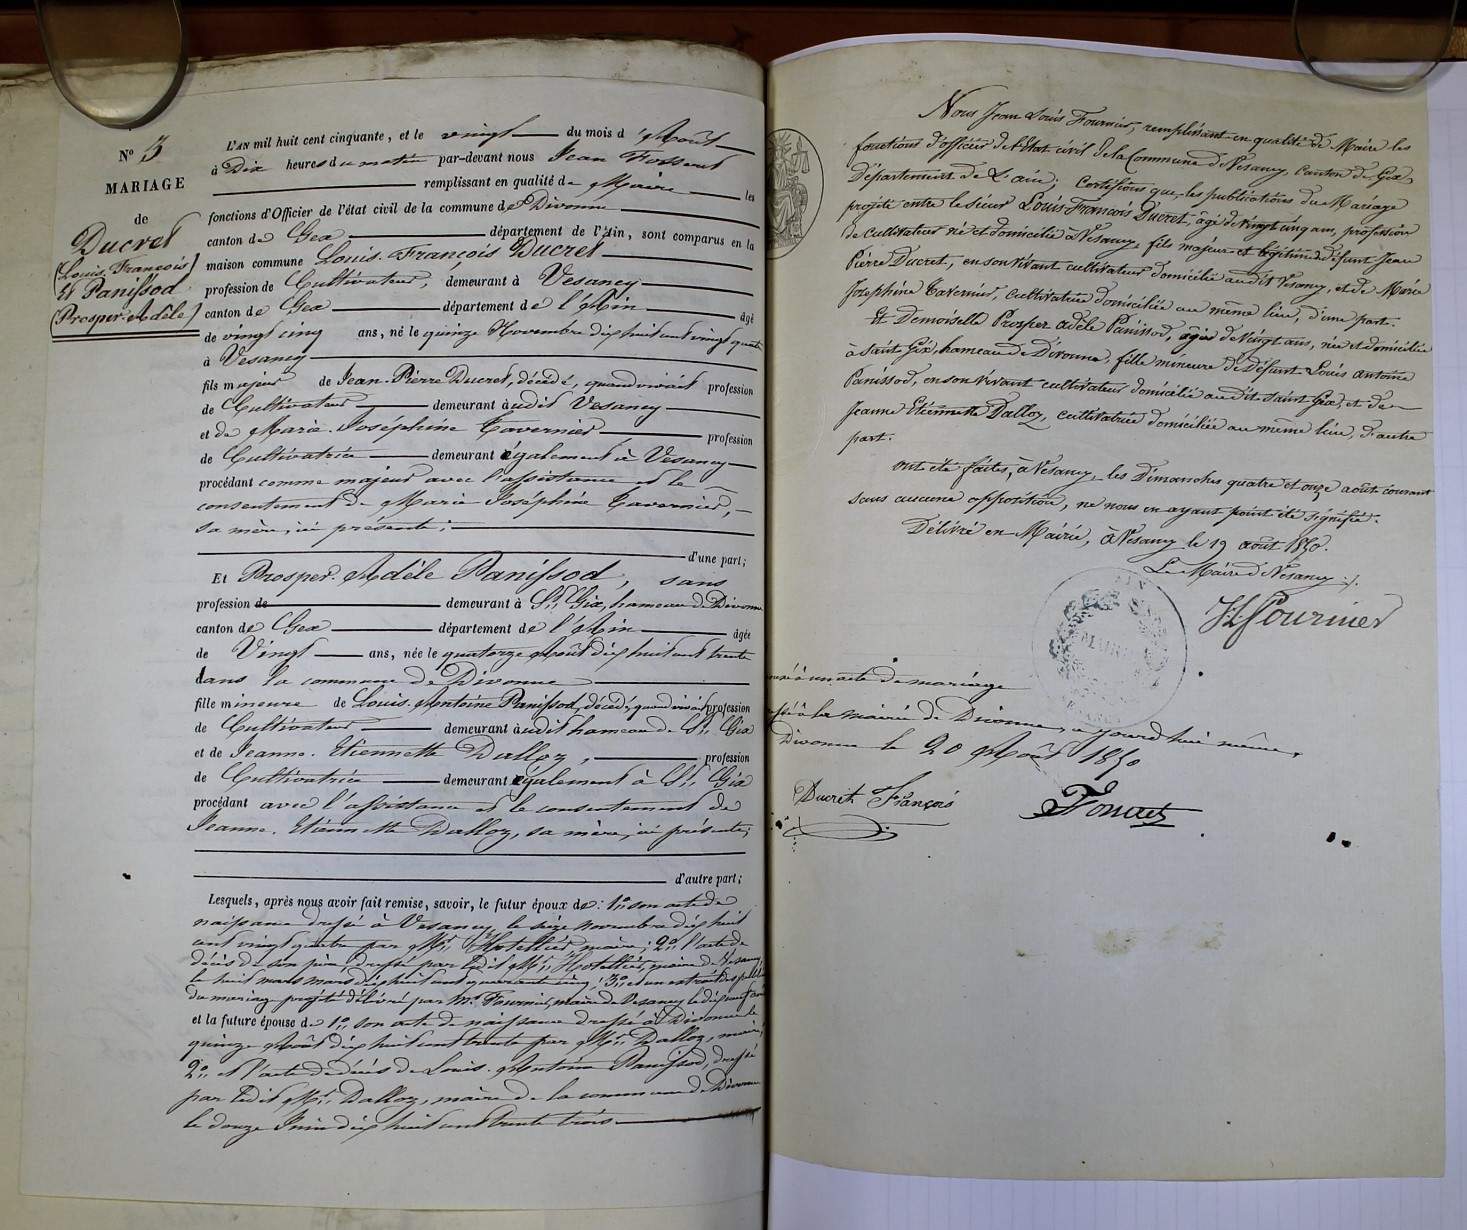 N° 3
MARIAGE
de
Ducret
(Louis. François)
et Panissod
(Prosper. Adèle)
L'AN mil huit cent cinquante, et le vingt du mois d'Août
à Dix heures du matin par-devant nous Jean Fossent
remplissant en qualité de Maire les
fonctions d'Officier de l'état civil de la commune de Divonne
canton de Gex département de l'Ain, sont comparus en la
maison commune Louis. François Ducret
profession de Cultivateur, demeurant à Vesancy
canton de Gex département de l'Ain âgé
de vingt cinq ans, né le quinze Novembre dix huit cent vingt quatre
à Vesancy
fils majeur de Jean-Pierre Ducret, décédé, quand vivait profession
de Cultivateur demeurant àudit Vesancy
et de Marie. Joséphine Tavernier profession
de Cultivatrice demeurant également à Vesancy
procédant comme majeur avec l'assistance et le
consentement de Marie Joséphine Tavernier,
sa mère, ici présente;
d'une part;
Et Prosper. Adèle Panissod, sans
profession de demeurant à St. Gix, hameau de Divonne
canton de Gex département de l'Ain âgée
de Vingt ans, née le quatorze Août dix huit cent trente
dans la commune de Divonne
fille mineure de Louis. Antoine Panissod, décédé, quand vivait profession
de Cultivateur demeurant àudit hameau de St. Gix
et de Jeanne. Etiennette Dalloz, profession
de Cultivatrice demeurant également à St. Gix
procédant avec l'assistance et le consentement de
Jeanne. Etiennette Dalloz, sa mère, ici présente;
d'autre part;
Lesquels, après nous avoir fait remise, savoir, le futur époux de: 1° son acte de
naissance dressé à Vesancy le seize novembre dix huit
cent vingt quatre par Mr. Hotellier, maire; 2° l'acte de
décès de son père, dressé par ledit Mr. Hotellier, maire de Vesancy,
le huit mars mars dix huit cent quarante cinq; 3° et un extrait des publ.
du mariage projeté délivré par Mr. Fournier, maire de Vesancy le dix neuf août
et la future épouse de 1° son acte de naissance dressé à Divonne le
quinze Août dix huit cent trente par Mr. Dalloz, maire;
2° et l'acte de décès de Louis. Antoine Panissod, dressé
par ledit Mr. Dalloz, maire de la commune de Divonne
le douze Juin dix huit cent trente trois
Nous Jean Louis Fournier, remplissant en qualité de Maire les
fonctions d'officier de l'état civil de la Commune de Vesancy Canton de Gex,
Département de L'ain; Certifions que les publications du Mariage
projeté entre le sieur Louis François Ducret, âgé de vingt cinq ans, profession
de Cultivateur né et domicilié à Vesancy, fils majeur et légitime de défunt Jean
Pierre Ducret, en son vivant cultivateur domicilié audit Vesancy, et de Marie
Josephine Tavernier, cultivatrice domiciliée au même lieu, d'une part.
Et Demoiselle Prosper adèle Panissod, âgée de Vingt ans, née et domiciliée
à saint Gix, hameau de Divonne, fille mineure de Défunt Louis antoine
Panissod, en son vivant cultivateur domicilié audit saint Gix, et de
Jeanne Etiennette Dalloz, cultivatrice domiciliée au même lieu, d'autre
part.
ont été faites, à Vesancy, les Dimanches quatre et onze août courant
sans aucune opposition, ne nous en ayant point été signifié.
Délivré en Mairie, à Vesancy le 19 août 1850.
Le Maire de Vesancy
JL Fournier
MAIRIE
à un acte de mariage
à la mairie de Divonne, aujourd'hui même,
Divonne le 20 Août 1850
Ducret François